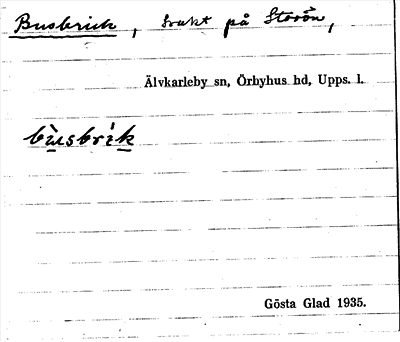 Busbrick, trakt på Storön,
Älvkarleby sn, Örbyhus hd, Upps. l.
bùsbrík
Gösta Glad 1935.